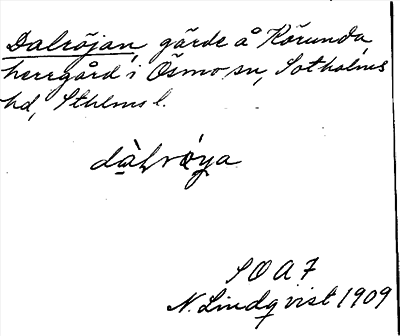 Dalröjan, gärde å Körunda
herrgård i Ösmo sn, Sotholms
hd, Sthlms l.
dàlrøya
S O A F
N. Lindqvist 1909